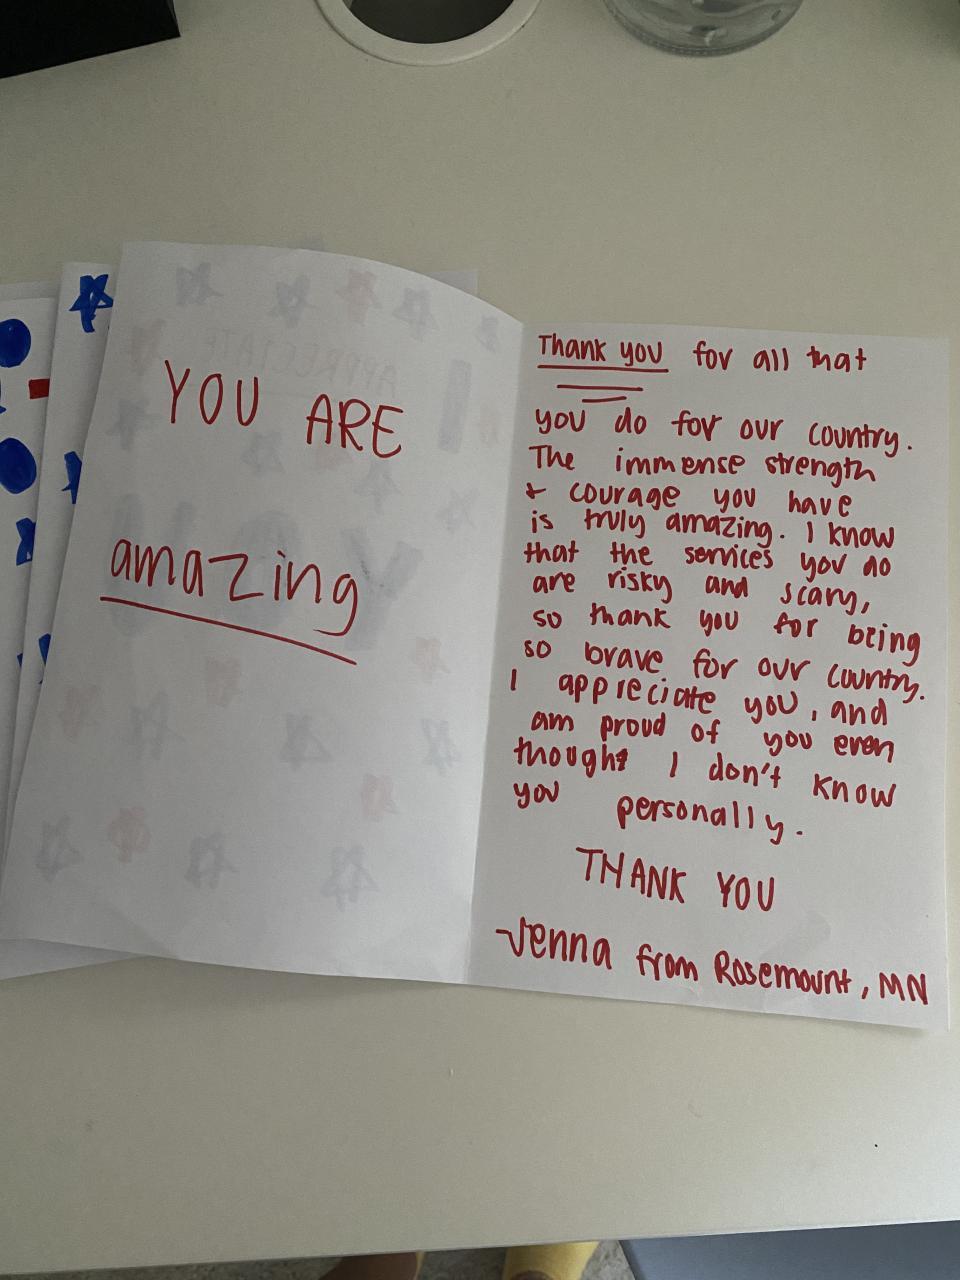 YOU ARE
amazing
Thank you for all that
you do for our country.
The immense strength
& courage you have
is truly amazing. I know
that the services you do
are risky and scary,
so thank you for being
so brave for our country.
I appreciate you, and
am proud of you even
thought I don't know
you personally.
THANK YOU
-Jenna from Rosemount, MN
I
APPRECIATE
YOU